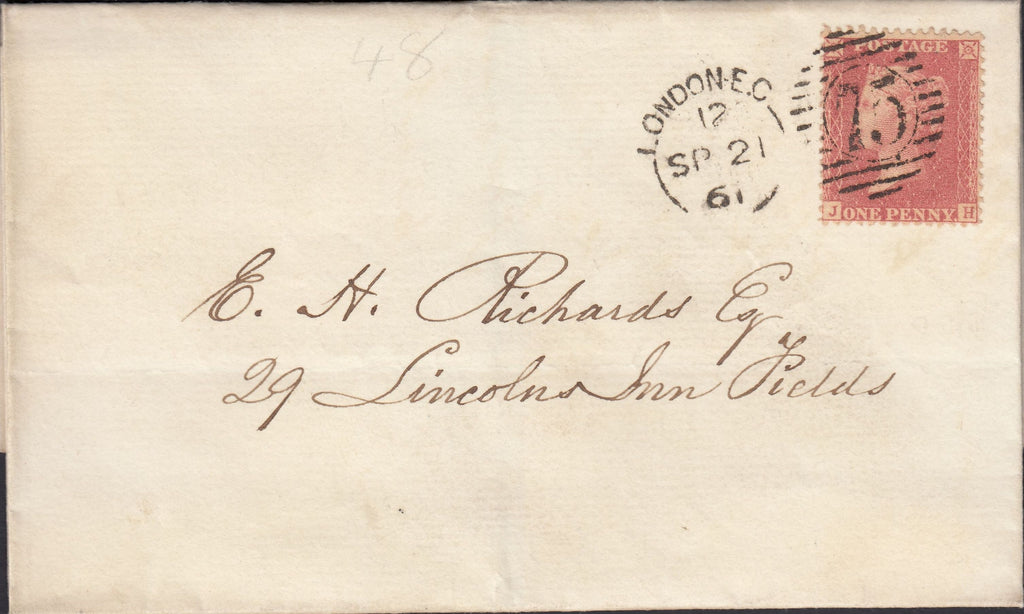 48
LONDON·E.C
12
SP 21
61
POSTAGE
15
J ONE PENNY H
E. H. Richards Esq
29 Lincolns Inn Fields